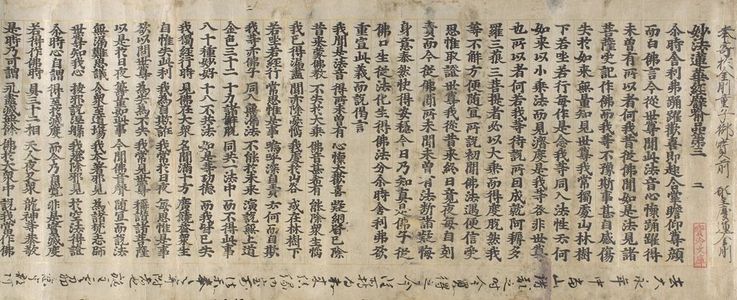 妙法蓮華經譬喻品第三 二
尒時舍利弗踊躍歡喜即起合掌瞻仰尊顏
而白佛言今從世尊聞此法音心懷踊躍得
未曾有所以者何我昔從佛聞如是法見諸
菩薩受記作佛而我等不豫斯事甚自感傷
失於如來無量知見世尊我常獨處山林樹
下若坐若行每作是念我等同入法性云何
如來以小乘法而見濟度是我等咎非世尊
也所以者何若我等待說所因成就阿耨多
羅三藐三菩提者必以大乘而得度脫然我
等不解方便隨宜所說初聞佛法遇便信受
思惟取證世尊我從昔來終日竟夜每自剋
責而今從佛聞所未聞未曾有法斷諸疑悔
身意泰然快得安穩今日乃知真是佛子從
佛口生從法化生得佛法分尒時舍利弗欲
重宣此義而說偈言
我聞是法音 得所未曾有 心懷大歡喜 疑網皆已除
昔來蒙佛教 不失於大乘 佛音甚希有 能除眾生惱
我已得漏盡 聞亦除憂惱 我處於山谷 或在林樹下
若坐若經行 常思惟是事 嗚呼深自責 云何而自欺
我等亦佛子 同入無漏法 不能於未來 演說無上道
金色三十二 十力諸解脫 同共一法中 而不得此事
八十種妙好 十八不共法 如是等功德 而我皆已失
我獨經行時 見佛在大眾 名聞滿十方 廣饒益眾生
自惟失此利 我為自欺誑 我常於日夜 每思惟是事
欲以問世尊 為失為不失 我常見世尊 稱讚諸菩薩
以是於日夜 籌量如此事 今聞佛音聲 隨宜而說法
無漏難思議 令眾至道場 我本著邪見 為諸梵志師
世尊知我心 拔邪說涅槃 我悉除邪見 於空法得證
尒時心自謂 得至於滅度 而今乃自覺 非是實滅度
若得作佛時 具三十二相 天人夜叉眾 龍神等恭敬
是時乃可謂 永盡滅無餘 佛於大眾中 說我當作佛